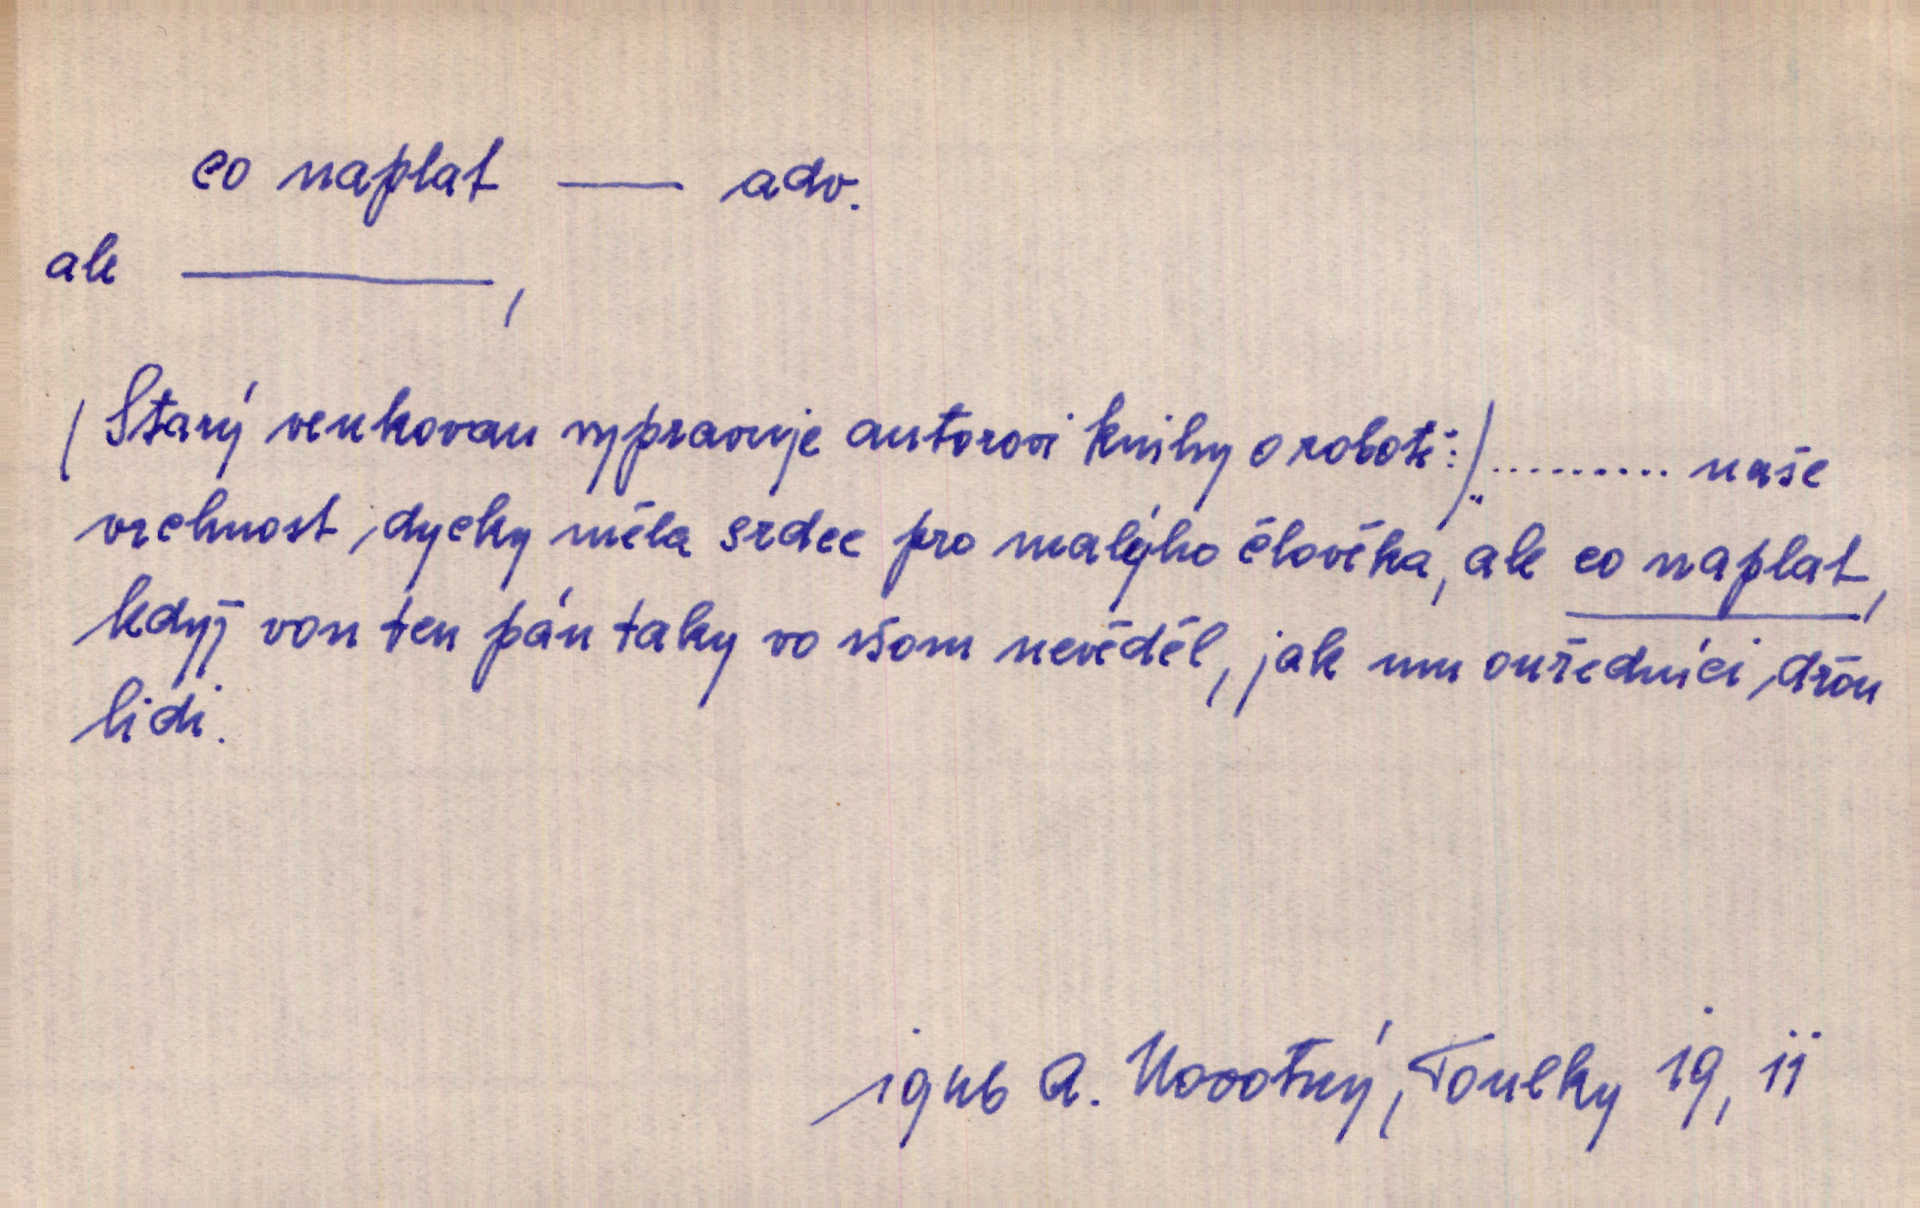 co naplat — adv.
ale ———,
(Starý venkovan vypravuje autorovi knihy o robotě:) .......... naše
vrchnost dycky měla srdce pro malýho člověka, ale co naplat,
když von ten pán taky vo všom nevěděl, jak mu ouředníci dřou
lidi.
1946 A. Novotný, Toulky 19, 11